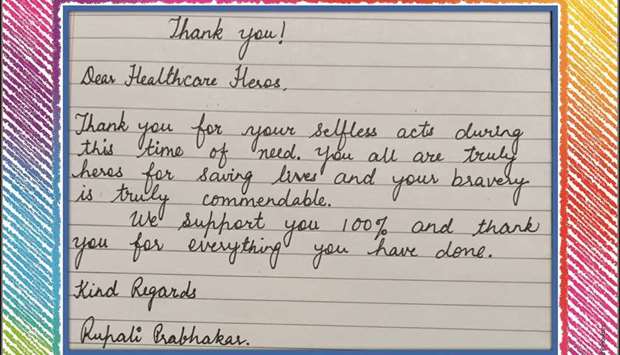 Thank you!
Dear Healthcare Heros,
Thank you for your selfless acts during
this time of need. You all are truly
heros for saving lives and your bravery
is truly commendable.
We support you 100% and thank
you for everything you have done.
Kind Regards
Rupali Prabhakar.